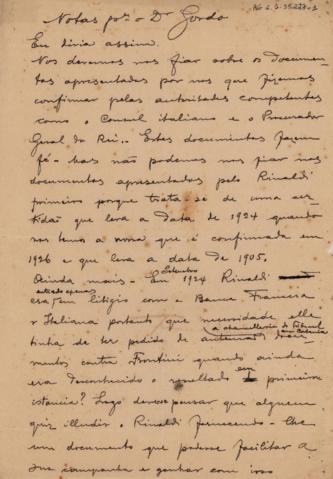 Notas pª o Dr Gordo
Eu diria assim.
Nos devemos nos fiar sobre os documen-
tos apresentados por nos que fizemos
confirmar pelas autoridades competentes
como o Consul italiano e o Procurador
Geral do Rei.. Estes documentos fazem
fé - Mas não podemos nos fiar nos
documentos apresentados pelo Rinaldi
primeiro porque trata-se de uma cer-
tidão que leva a data de 1924 quando
nos temos a nossa que é confirmada em
1926 e que leva a data de 1905.
Ainda mais - Em Setembro 1924 Rinaldi
estava apenas
em litigio com a Banca Francesa
e Italiana portanto que necessidade elle
a chancellaria do Tribunal
tinha de ter pedido
mentos contra Frontini quando ainda
era desconhecido o resultado em primeira
istancia? Logo deve-se pensar que alguem
quiz illudir o Rinaldi fornecendo-lhe
um documento que podesse facilitar a
sua campanha e ganhar com isso